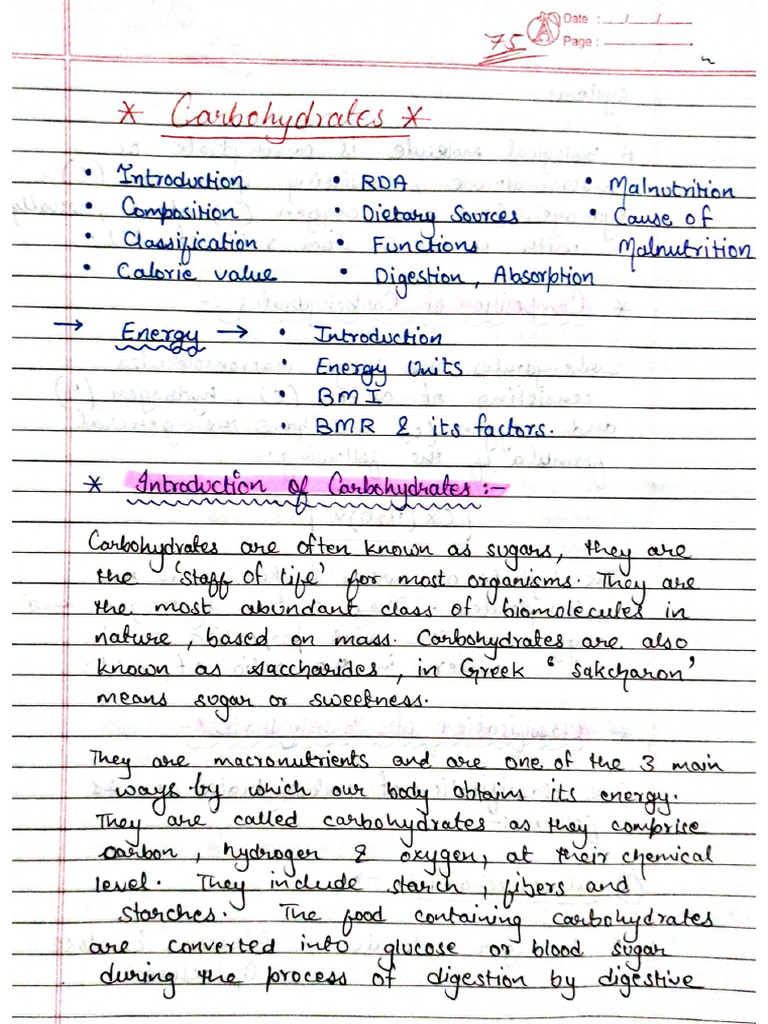 Date : __/__/__
75
Page :
* Carbohydrates *
• Introduction • RDA • Malnutrition
• Composition • Dietary Sources • Cause of
• Classification • Functions Malnutrition
• Calorie value • Digestion, Absorption
→ Energy → • Introduction
• Energy Units
• BMI
• BMR & its factors.
* Introduction of Carbohydrates :-
Carbohydrates are often known as sugars, they are
the 'staff of life' for most organisms. They are
the most abundant class of biomolecules in
nature, based on mass. Carbohydrates are also
known as saccharides, in Greek ' sakcharon'
means sugar or sweetness.
They are macronutrients and are one of the 3 main
ways by which our body obtains its energy.
They are called carbohydrates as they comprise
carbon, hydrogen & oxygen, at their chemical
level. They include starch, fibers and
starches. The food containing carbohydrates
are converted into glucose or blood sugar
during the process of digestion by digestive